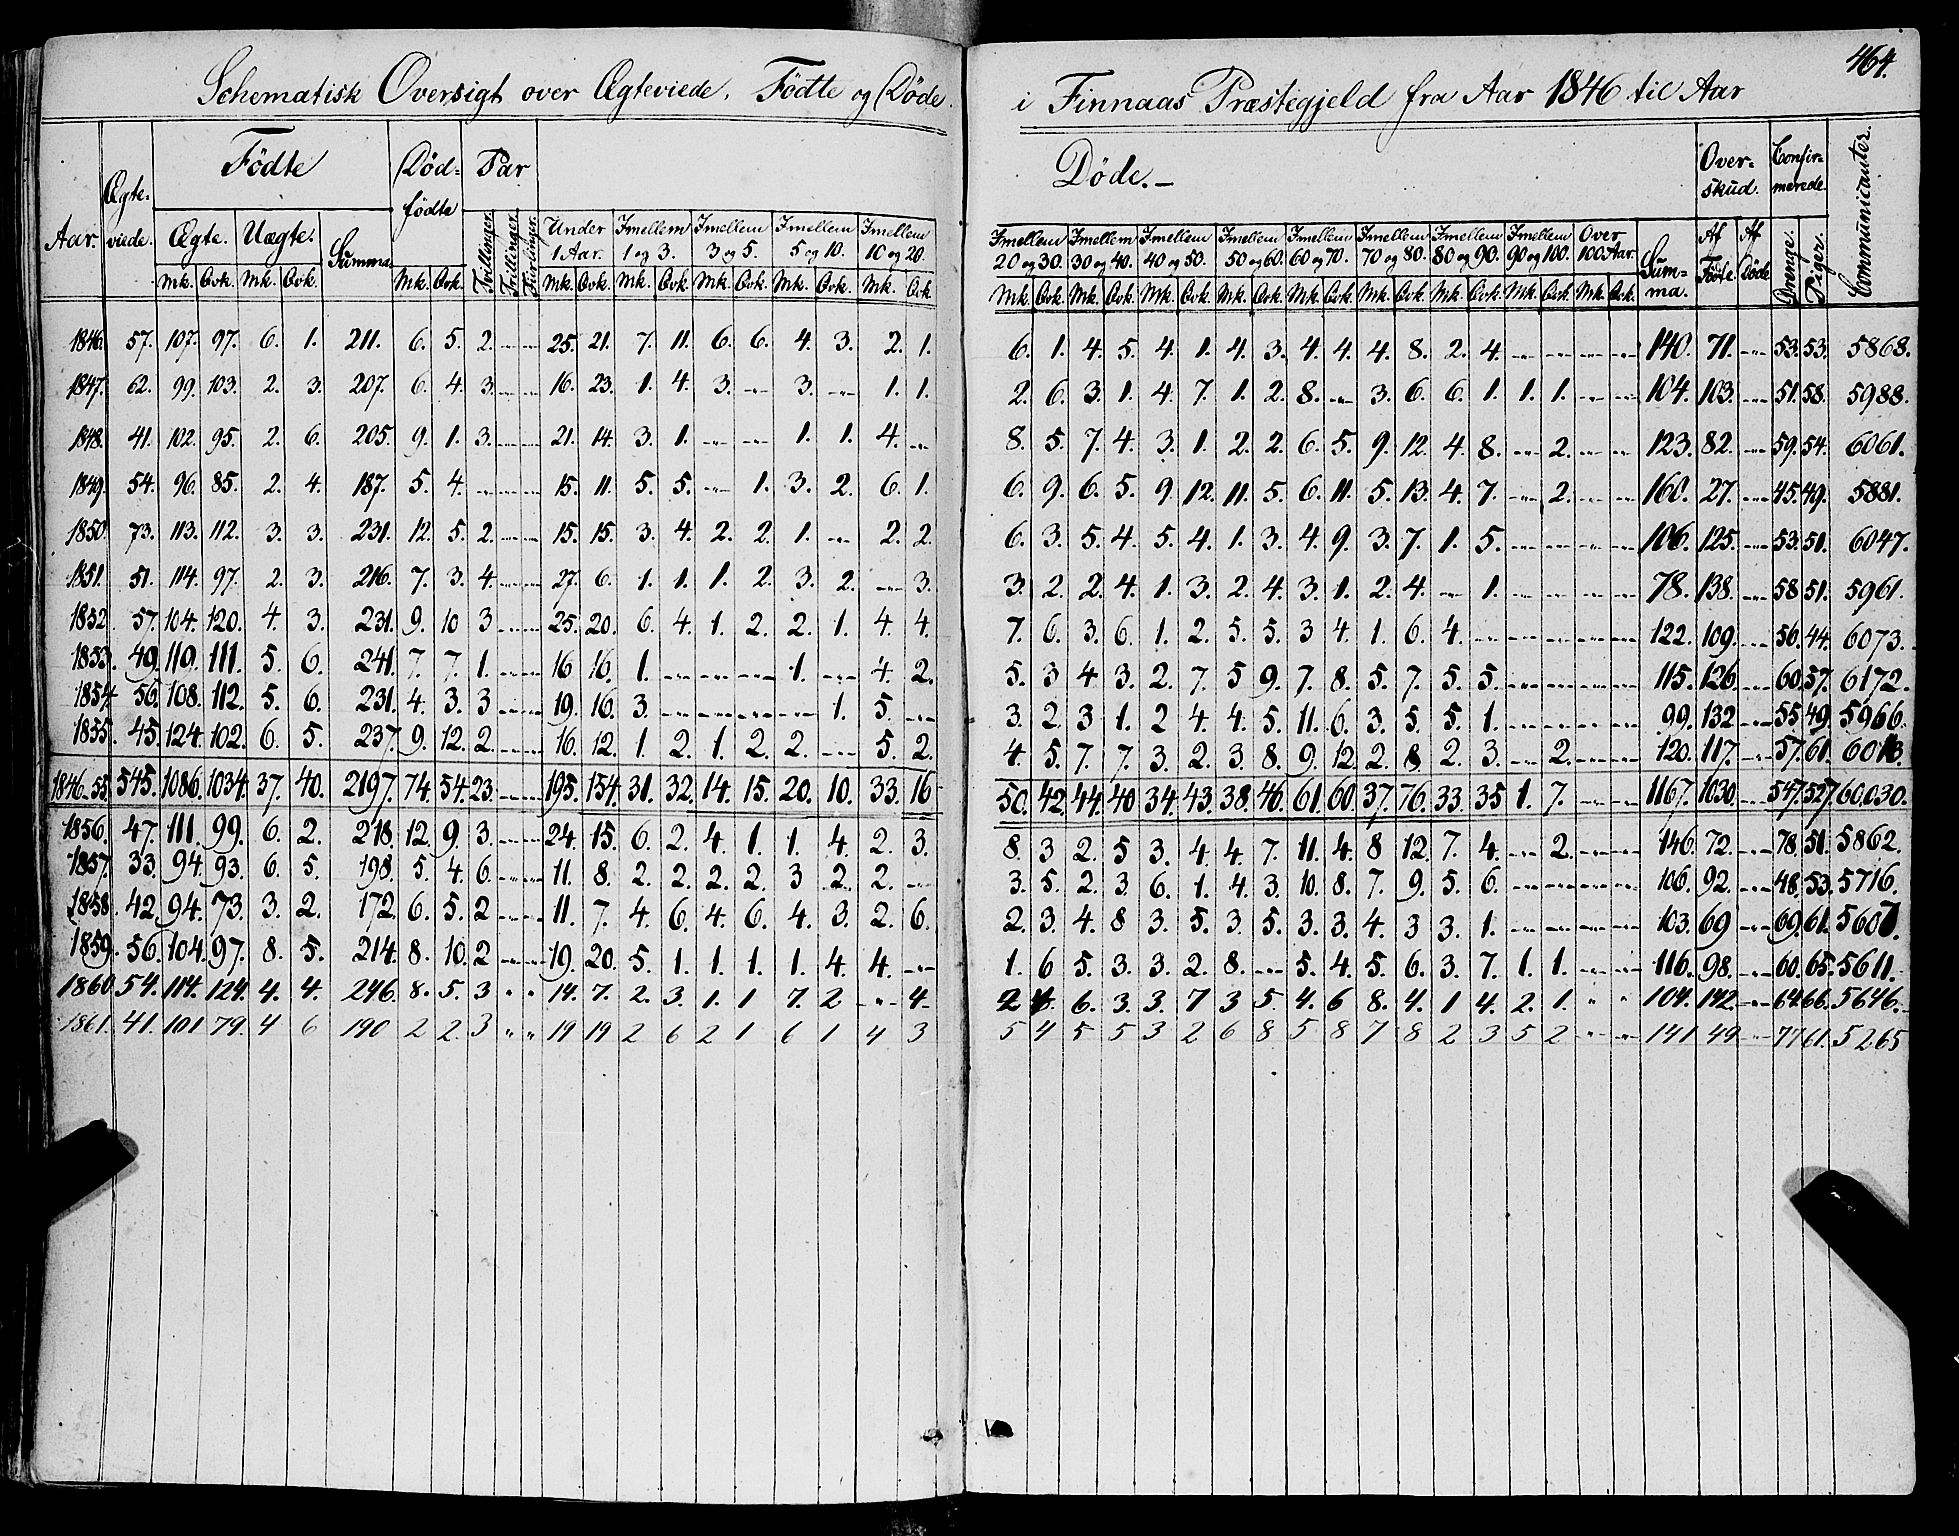 464.
Schematisk Oversigt over Ægteviede, Födte og Döde. i Finnaas Præstegjeld fra Aar 1846 til Aar
Aar. Ægte- viede. Födte Död- födte Par Döde.- Over- skud. Confir- merede. Communicanter.
Ægte. Uægte. Summa. Tvillinger. Trillinger. Firlinger. Under 1 Aar. Imellem 1 og 3. Imellem 3 og 5. Imellem 5 og 10. Imellem 10 og 20. Imellem 20 og 30. Imellem 30 og 40. Imellem 40 og 50. Imellem 50 og 60. Imellem 60 og 70. Imellem 70 og 80. Imellem 80 og 90. Imellem 90 og 100. Over 100 Aar. Sum- ma. Af Födte Af Döde Drenge. Piger.
Mk. Qvk. Mk. Qvk. Mk. Qvk. Mk. Qvk. Mk. Qvk. Mk. Qvk. Mk. Qvk. Mk. Qvk. Mk. Qvk. Mk. Qvk. Mk. Qvk. Mk. Qvk. Mk. Qvk. Mk. Qvk. Mk. Qvk. Mk. Qvk. Mk. Qvk.
1846. 57. 107. 97. 6. 1. 211. 6. 5. 2. " " 25. 21. 7. 11. 6. 6. 4. 3. 2. 1. 6. 1. 4. 5. 4. 1. 4. 3. 4. 4. 4. 8. 2. 4. " " " " 140. 71. " 53. 53. 5868.
1847. 62. 99. 103. 2. 3. 207. 6. 4. 3. " " 16. 23. 1. 4. 3. " 3. " 1. 1. 2. 6. 3. 1. 4. 7. 1. 2. 8. " 3. 6. 6. 1. 1. 1. " " 104. 103. " 51. 58. 5988.
1848. 41. 102. 95. 2. 6. 205. 9. 1. 3. " " 21. 14. 3. 1. " " 1. 1. 4. " 8. 5. 7. 4. 3. 1. 2. 2. 6. 5. 9. 12. 4. 8. " 2. " " 123. 82. " 59. 54. 6061.
1849. 54. 96. 85. 2. 4. 187. 5. 4. " " " 15. 11. 5. 5. " 1. 3. 2. 6. 1. 6. 9. 6. 5. 9. 12. 11. 5. 6. 11. 5. 13. 4. 7. " 2. " " 160. 27. " 45. 49. 5881.
1850. 73. 113. 112. 3. 3. 231. 12. 5. 2. " " 15. 15. 3. 4. 2. 2. 1. " 2. 2. 6. 3. 5. 4. 5. 4. 1. 3. 4. 9. 3. 7. 1. 5. " " " " 106. 125. " 53. 51. 6047.
1851. 51. 114. 97. 2. 3. 216. 7. 3. 4. " " 27. 6. 1. 1. 1. 2. 3. 2. " 3. 3. 2. 2. 4. 1. 3. 2. 4. 3. 1. 2. 4. " 1. " " " " 78. 138. " 58 51. 5961.
1852 57. 104. 120. 4. 3. 231. 9. 10 3 " " 25. 20. 6. 4. 1. 2. 2. 1. 4. 4. 7. 6. 3. 6. 1. 2. 5. 5. 3 4. 1. 6. 4. " " " " " 122. 109. " 56. 44. 6073.
1853. 49. 119. 111. 5. 6. 241. 7. 7. 1. " " 16 16. 1. " " " 1. " 4. 2. 5. 3 4 3. 2. 7. 5 9. 7. 8. 5. 7. 5. 5. " " " " 115. 126. " 60. 57. 6172.
1854. 56. 108. 112. 5. 6. 231. 4. 3. 3 " " 19. 16. 3. " " " " 1. 5. " 3. 2. 3 1. 2 4 4. 5. 11. 6. 3. 5. 5. 1. " " " " 99. 132 " 55 49. 5966.
1855. 45. 124. 102. 6. 5. 237. 9. 12. 2. " " 16. 12. 1. 2. 1. 2. 2. " 5. 2. 4. 5. 7. 7. 3. 2. 3. 8. 9. 12. 2. 8. 2. 3. " 2. " " 120. 117. " 57. 61. 6013.
1846-55. 545. 1086. 1034. 37. 40. 2197. 74. 54. 23. " " 195. 154. 31. 32. 14. 15. 20. 10. 33. 16 50. 42. 44. 40 34. 43. 38. 46. 61. 60. 37. 76. 33. 35 1. 7. " " 1167. 1030. " 547. 527. 60,030.
1856. 47. 111. 99. 6. 2. 218. 12. 9. 3. " " 24. 15. 6. 2. 4. 1. 1. 4. 2. 3. 8. 3 2. 5 3. 4 4. 7. 11. 4. 8 12. 7. 4. " 2. " " 146. 72. " 78. 51. 5862.
1857. 33. 94. 93. 6. 5. 198. 5. 4. 6. " " 11. 8. 2. 2. 2. 2. 3 2. 2. " 3. 5. 2. 3 6. 1. 4. 3. 10. 8. 7. 9. 5. 6. " " " " 106. 92. " 48. 53. 5716.
1858. 42. 94. 73. 3. 2. 172. 6. 5. 2 " " 11. 7. 4. 6. 4. 6. 4. 3. 2. 6. 2. 3. 4. 8 3. 5. 3. 5. 3. 3. 4. 3 3. 1. " " " " 103. 69 " 69. 61. 5607.
1859. 56. 104. 97. 8. 5. 214. 8. 10. 2 " " 19. 20. 5. 1. 1. 1. 1. 4. 4. " 1. 6 5. 3. 3. 2. 8. " 5. 4. 5. 6. 3. 7. 1. 1. " " 116. 98. " 60. 65. 5611.
1860. 54. 114. 124. 4. 4. 246. 8. 5. 3 " " 14. 7. 2. 3. 1. 1 7. 2 " 4. 2 4. 6. 3. 3. 7 3 5. 4. 6 8. 4. 1 4. 2. 1. " " 104. 142. " 64. 66. 5646.
1861. 41. 101 79. 4 6 190 2 2. 3 " " 19 19 2 6 2 1 6 1 4 3 5 4 5 5 3 2 6 8 5 8 7 8 2 3 5 2 " " 141 49 " 77 61. 5265